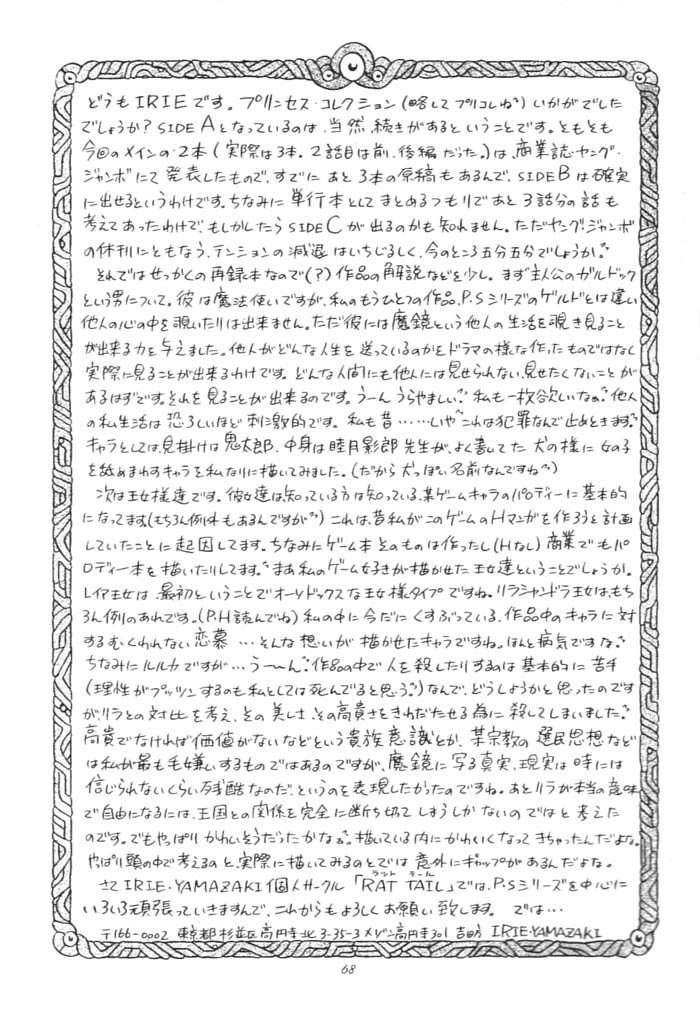 どうもIRIEです。プリンセス・コレクション(略してプリコレね)いかがでした
でしょうか?SIDE Aとなっているのは、当然、続きがあるということです。ともとも
今回のメインの2本(実際は3本。2話目は前、後編だった。)は、商業誌ヤング・
ジャンボにて発表したもので、すでにあと3本の原稿もあるんで、SIDE Bは確実
に出せるというわけです。ちなみに単行本としてまとめるつもりであと3話分の話も
考えてあったわけで、もしかしたらSIDE Cが出るのかも知れません。ただヤング・ジャンボ
の休刊にともなう、テンションの減退はいちじるしく、今のところ五分五分でしょうか。
それではせっかくの再録本なので(?)作品の解説などを少し。まず主人公のガルドック
という男について。彼は魔法使いですが、私のもうひとつの作品、P.Sシリーズのゲルドとは違い
他人の心の中を覗いたりは出来ません。ただ彼には魔鏡という他人の生活を覗き見ること
が出来る力を与えました。他人がどんな人生を送っているのかをドラマの様な作ったものではなく
実際に見ることが出来るわけです。どんな人間にも他人には見せられない、見せたくないことが
あるはずです。それを見ることが出来るのです。うーんうらやましい。私も一枚欲いなぁ。他人
の私生活は恐ろしいほど刺激的です。私も昔……いやこれは犯罪なんで止めときます。
キャラとしては、見掛けは鬼太郎、中身は睦月影郎先生が、よく書いてた犬の様に女の子
を舐めまわすキャラを私なりに描いてみました。(だから犬っぽい名前なんですね)
次は王女様達です。彼女達は知っている方は知っている、某ゲームキャラのパロディーに基本的
になってます。(もちろん例外もあるんですが)これは、昔私がこのゲームのHマンガを作ろうと計画
していたことに起因してます。ちなみにゲーム本そのものは作ったし(Hなし)商業でもパ
ロディー本を描いたりしてます。まあ私のゲーム好きが描かせた王女達ということでしょうか。
レイア王女は最初ということでオードックスな王女様タイプですね。リラシャンドラ王女は、もち
ろん例のあれです。(P.H読んでね)私の中に今だにくすぶっている、作品中のキャラに対
するむくわれない恋慕…そんな想いが描かせたキャラですね。ほんと病気ですな。
ちなみにルルカですが…うーん。作品の中で人を殺したりするのは基本的に苦手
(理性がプッツンするのも私としては死んでると思う。)なんで、どうしようかと思ったのです
が、リラとの対比を考え、その美しさ、その高貴さをきわだたせる為に殺してしまいました。
高貴でなければ価値がないなどという貴族意識とか、某宗教の選民思想など
は私が最も毛嫌いするものではあるのですが、魔鏡に写る真実、現実は時には
信じられないくらい残酷なのだ、というのを表現したかったのですね。あとリラが本当の意味
で自由になるには、王国との関係を完全に断ち切てしまうしかないのではと考えた
のです。でもやっぱりかわいそうだったかなぁ。描いている内にかわいくなってきちゃったんだよな。
やっぱり頭の中で考えるのと、実際に描いてみるのとでは意外にギャップがあるんだよな。
さてIRIE・YAMAZAKI個人サークル「RAT TAIL」では、P.Sシリーズを中心に
ラット テール
いろいろ頑張っていきますんで、これからもよろしくお願い致します。では…
〒166-0002 東京都杉並区高円寺北3-35-3メゾン高円寺301 吉田方 IRIE・YAMAZAKI
68